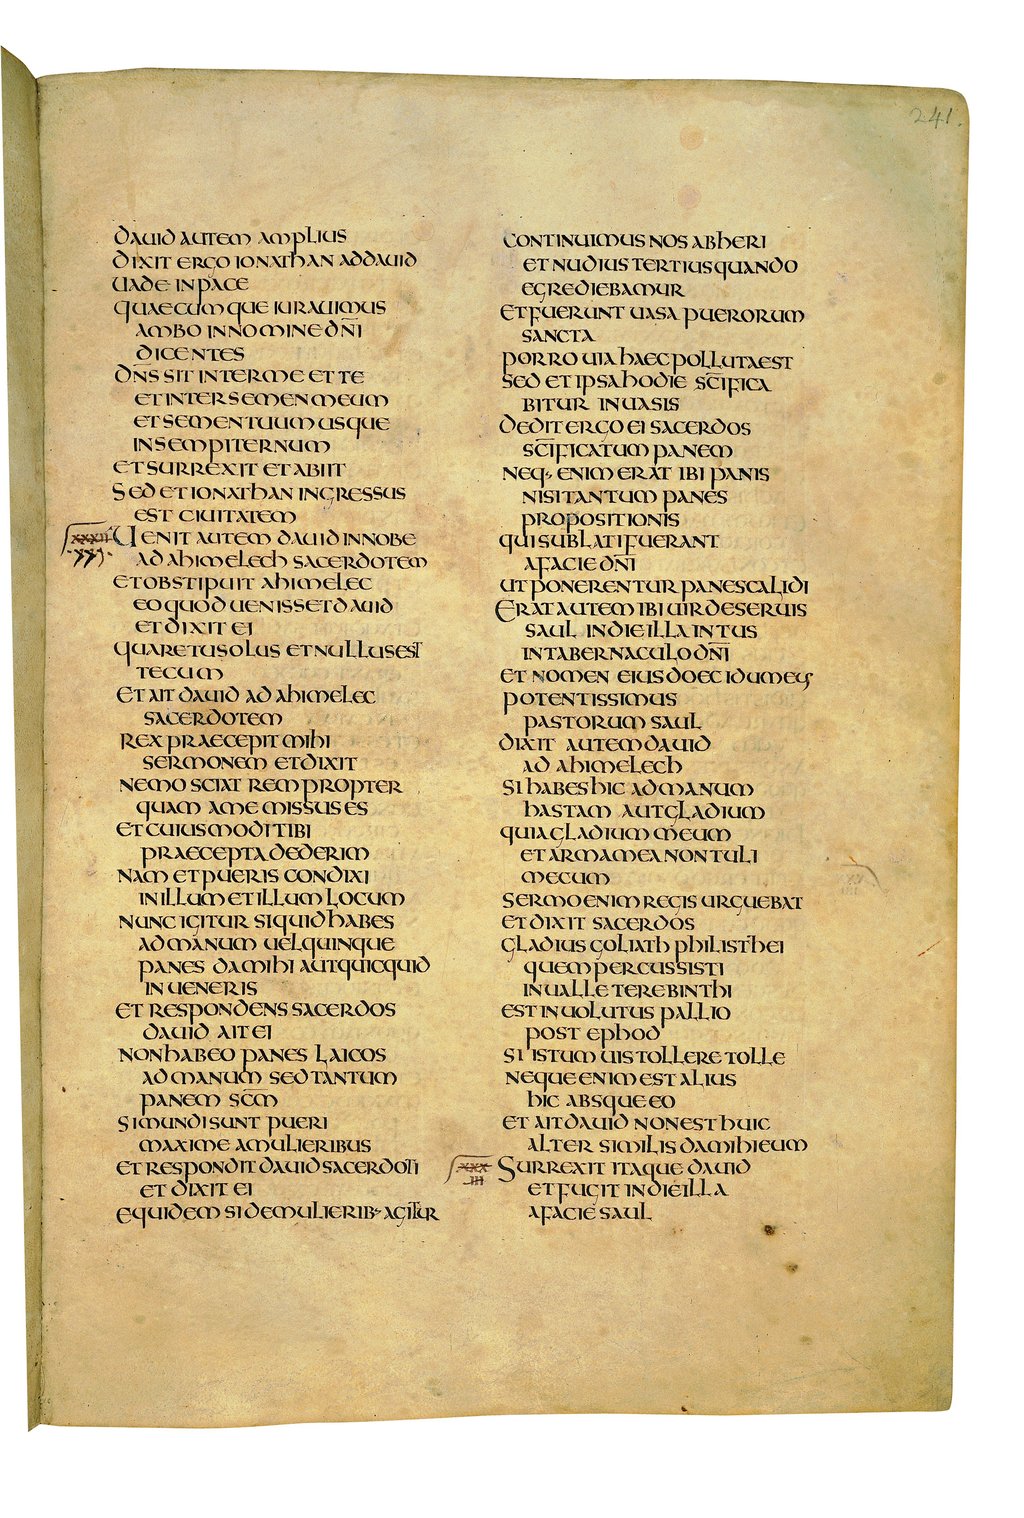 241.
DAUID AUTEM AMPLIUS
DIXIT ERGO IONATHAN ADDAUID
UADE IN PACE
QUAECUMQUE IURAUIMUS
AMBO IN NOMINE DN̄I
DICENTES
DN̄S SIT INTER ME ET TE
ET INTER SEMEN MEUM
ET SEMEN TUUM USQUE
IN SEMPITERNUM
ET SURREXIT ET ABIIT
SED ET IONATHAN INGRESSUS
EST CIUITATEM
XXXII UENIT AUTEM DAUID IN NOBE
AD AHIMELECH SACERDOTEM
ET OBSTIPUIT AHIMELEC
EO QUOD UENISSET DAUID
ET DIXIT EI
QUARE TU SOLUS ET NULLUS EST
TECUM
ET AIT DAUID AD AHIMELEC
SACERDOTEM
REX PRAECEPIT MIHI
SERMONEM ET DIXIT
NEMO SCIAT REM PROPTER
QUAM A ME MISSUS ES
ET CUIUSMODI TIBI
PRAECEPTA DEDERIM
NAM ET PUERIS CONDIXI
IN ILLUM ET ILLUM LOCUM
NUNC IGITUR SI QUID HABES
AD MANUM UEL QUINQUE
PANES DA MIHI AUT QUICQUID
INUENERIS
ET RESPONDENS SACERDOS
DAUID AIT EI
NON HABEO PANES LAICOS
AD MANUM SED TANTUM
PANEM SC̄M
SI MUNDI SUNT PUERI
MAXIME A MULIERIBUS
ET RESPONDIT DAUID SACERDOTI
ET DIXIT EI
EQUIDEM SI DE MULIERIB· AGITUR
CONTINUIMUS NOS AB HERI
ET NUDIUSTERTIUS QUANDO
EGREDIEBAMUR
ET FUERUNT UASA PUERORUM
SANCTA
PORRO UIA HAEC POLLUTA EST
SED ET IPSA HODIE SC̄IFICA
BITUR IN UASIS
DEDIT ERGO EI SACERDOS
SC̄IFICATUM PANEM
NEQ· ENIM ERAT IBI PANIS
NISI TANTUM PANES
PROPOSITIONIS
QUI SUBLATI FUERANT
A FACIE DN̄I
UT PONERENTUR PANES CALIDI
ERAT AUTEM IBI UIR DE SERUIS
SAUL IN DIE ILLA INTUS
IN TABERNACULO DN̄I
ET NOMEN EIUS DOEC IDUMEUS
POTENTISSIMUS
PASTORUM SAUL
DIXIT AUTEM DAUID
AD AHIMELECH
SI HABES HIC AD MANUM
HASTAM AUT GLADIUM
QUIA GLADIUM MEUM
ET ARMA MEA NON TULI
MECUM
SERMO ENIM REGIS URGUEBAT
ET DIXIT SACERDOS
GLADIUS GOLIATH PHILISTHEI
QUEM PERCUSSISTI
IN UALLE TEREBINTHI
EST INUOLUTUS PALLIO
POST EPHOD
SI ISTUM UIS TOLLERE TOLLE
NEQUE ENIM EST ALIUS
HIC ABSQUE EO
ET AIT DAUID NON EST HUIC
ALTER SIMILIS DA MIHI EUM
XXXIII SURREXIT ITAQUE DAUID
ET FUGIT IN DIE ILLA
A FACIE SAUL